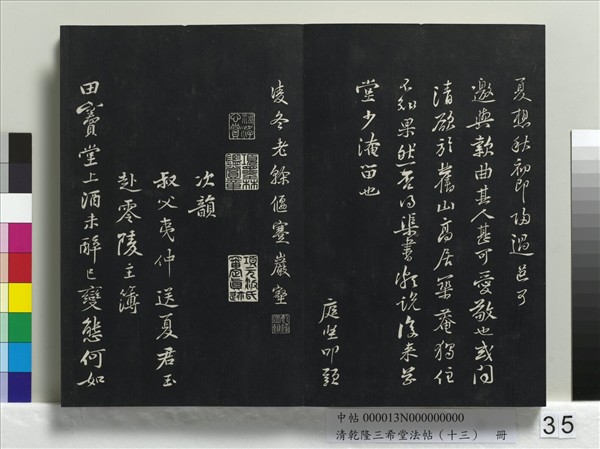 夏想秋初即歸過邑可
邀與款曲其人甚可愛敬也或問
清欲於舊山高居築菴獨住
不知果然否得渠書說後來草
堂少淹留也
庭堅叩頭
凌冬老偃蹇巖壑
次韻
叔父夷仲送夏君玉
赴零陵主簿
田竇堂上酒未醉已變態何如
中帖 000013N000000000
清乾隆三希堂法帖(十三) 冊
35